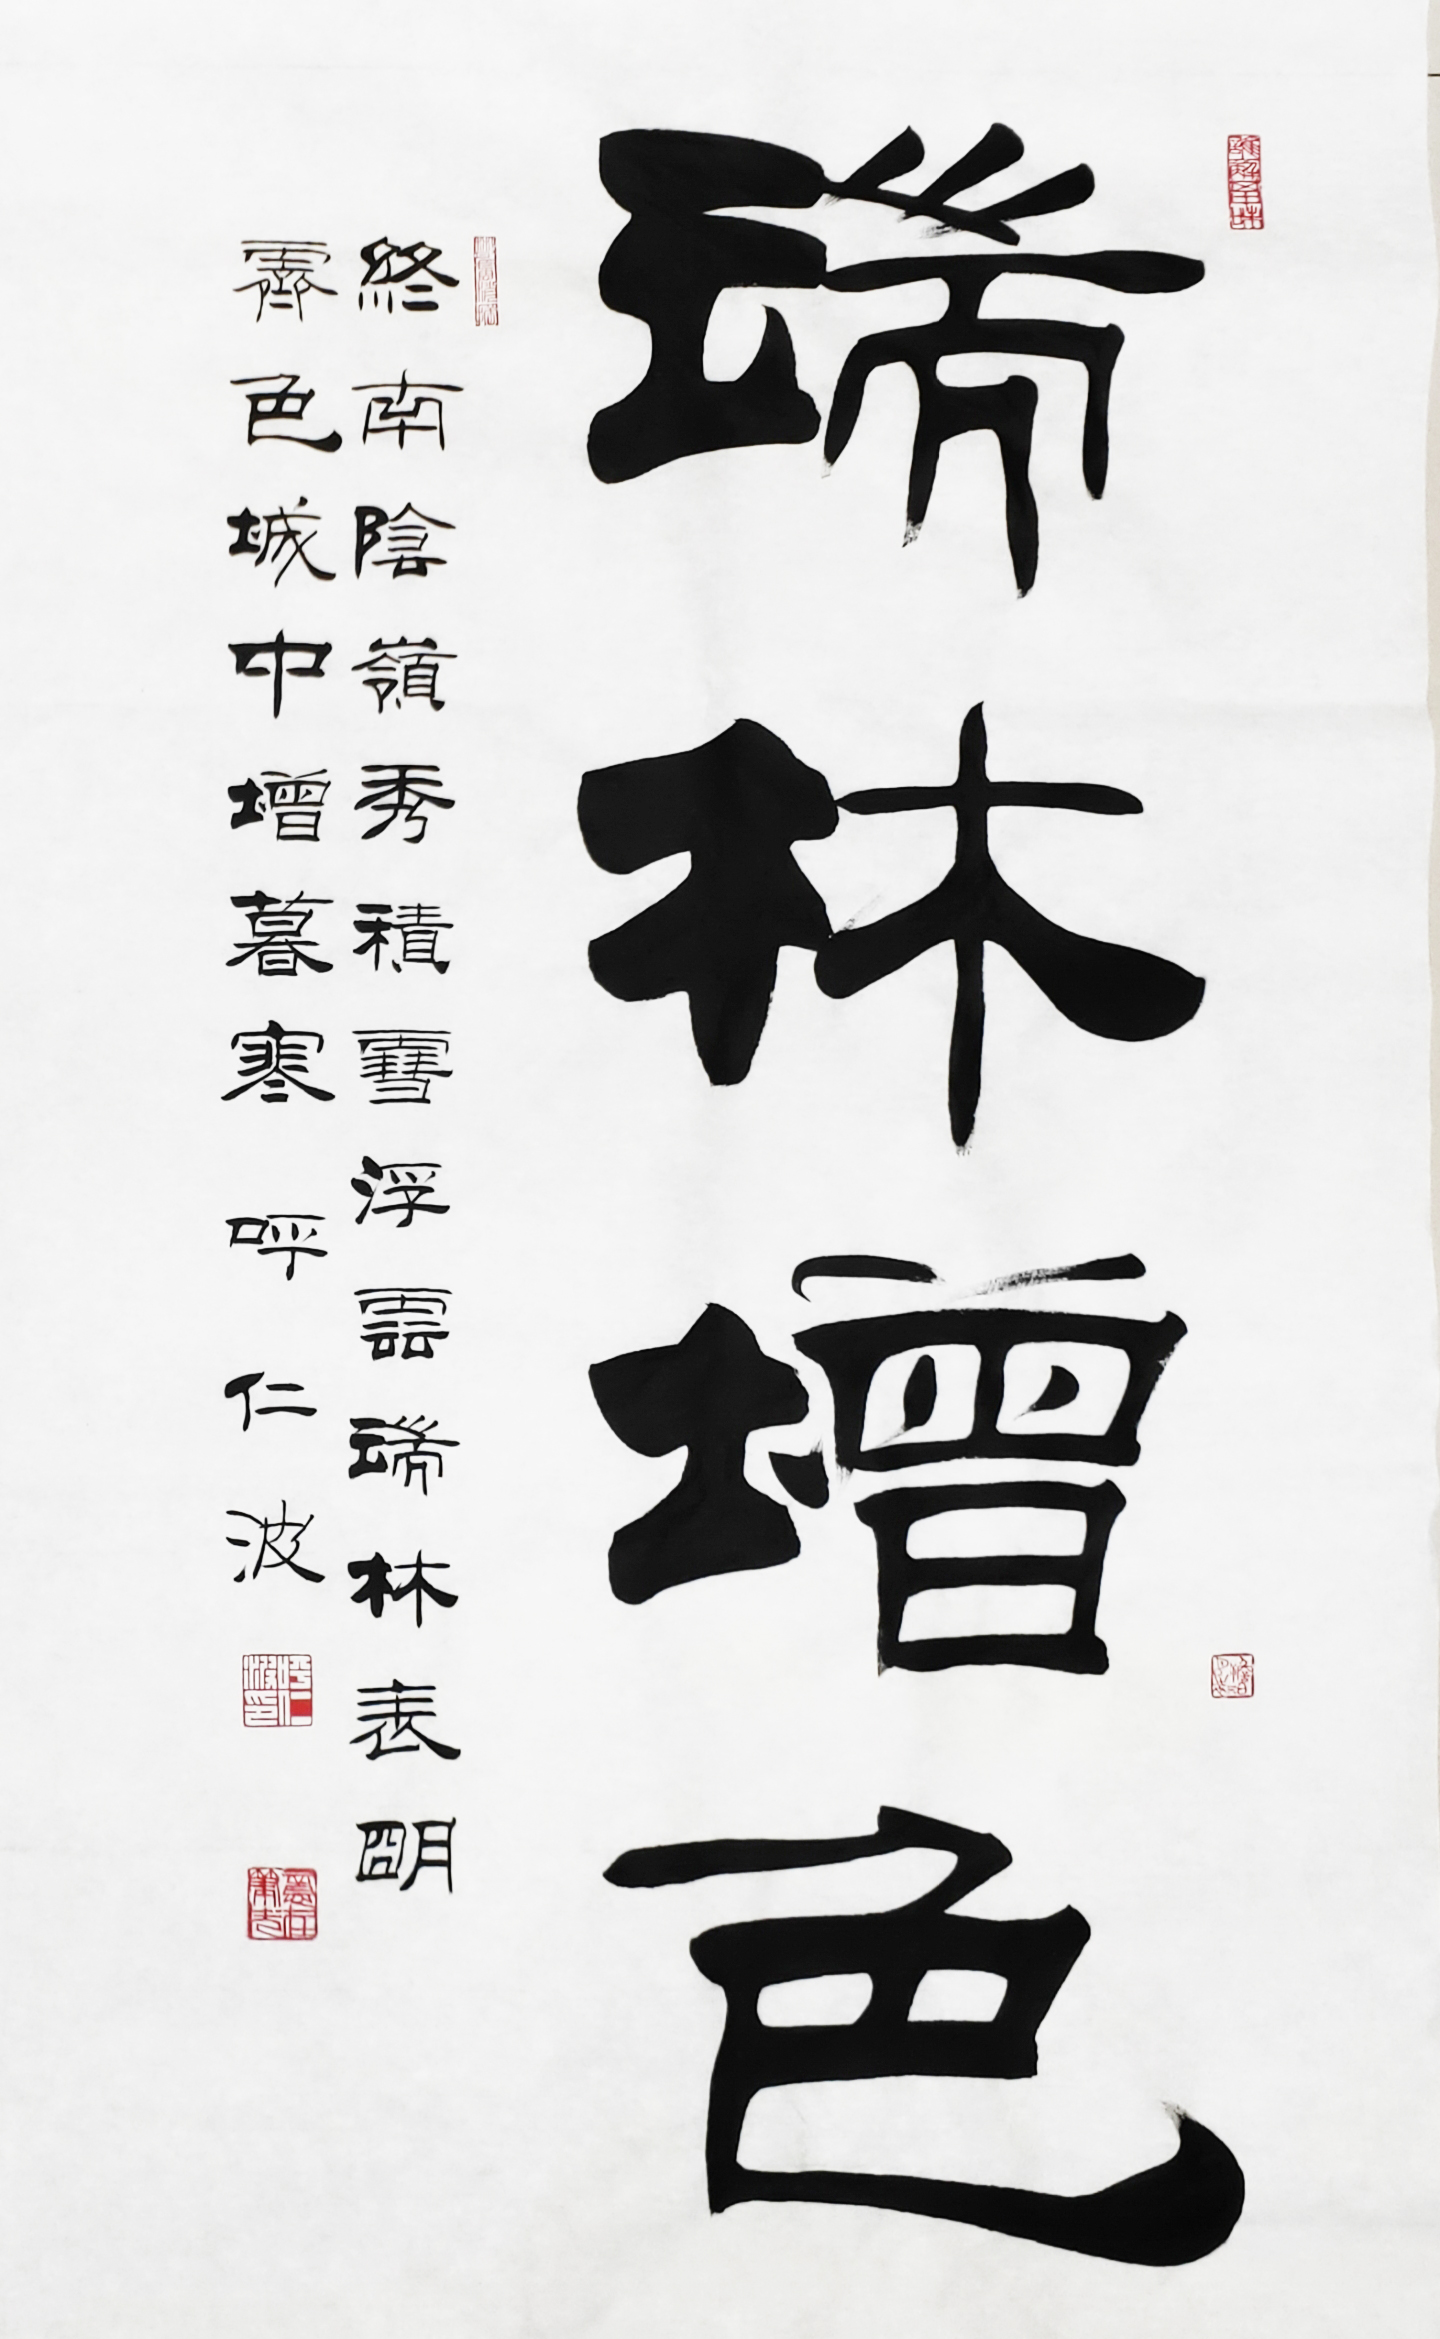 瑞林增色
終南陰嶺秀積雪浮雲瑞林表明
霽色城中增暮寒 呼仁波
呼仁波印